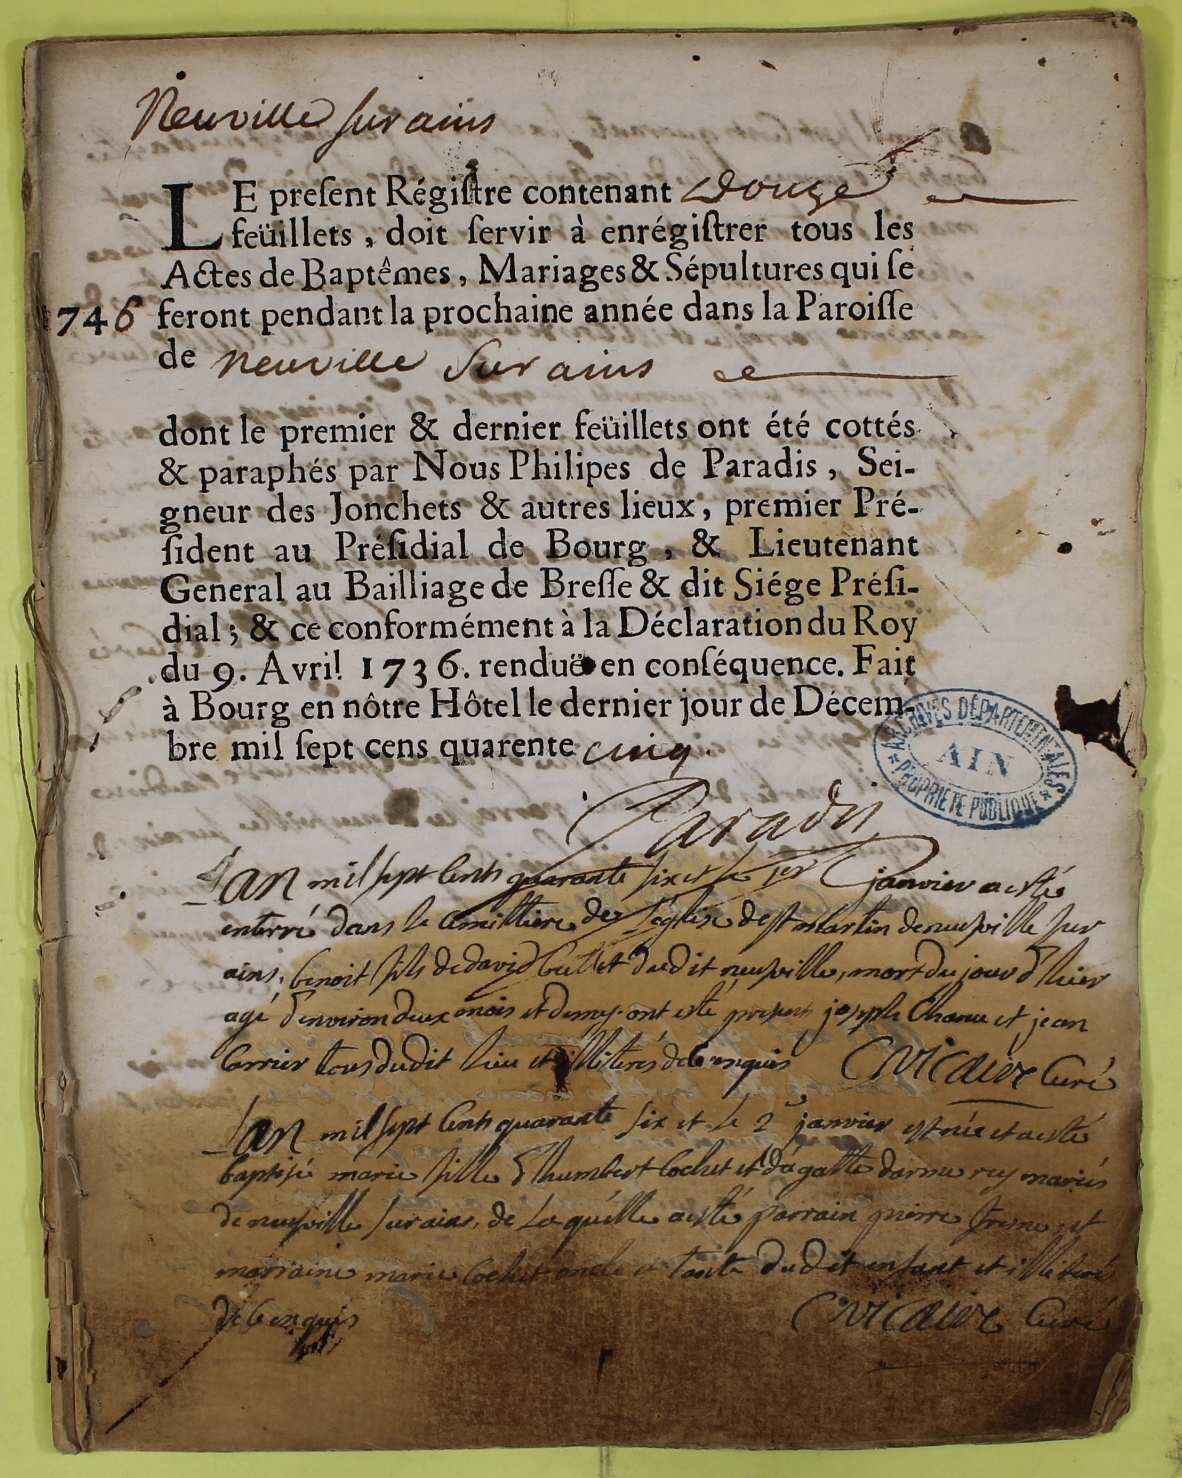 Neuville sur ains
LE preſent Régiſtre contenant Douze
feüillets, doit ſervir à enrégiſtrer tous les
Actes de Baptêmes, Mariages & Sépultures qui ſe
1746 feront pendant la prochaine année dans la Paroiſſe
de neuville Sur ains
dont le premier & dernier feüillets ont été cottés
& paraphés par Nous Philipes de Paradis, Sei-
gneur des Jonchets & autres lieux, premier Pré-
ſident au Préſidial de Bourg, & Lieutenant
General au Bailliage de Breſſe & dit Siége Préſi-
dial; & ce conformément à la Déclaration du Roy
du 9. Avril 1736. renduë en conſéquence. Fait
à Bourg en nôtre Hôtel le dernier jour de Décem-
bre mil ſept cens quarente cinq.
ARCHIVES DÉPARTEMENTALES
AIN
PROPRIÉTÉ PUBLIQUE
Paradis
Lan mil sept Cents quarante six et le 1er janvier a esté
enterré dans le Cimittiere de L'église de st martin de neufville sur
ains, benoit fils de david dudit neufville, mort du jour d'hier
agé d'environ deux mois et demy. ont esté présent joseph et jean
tous dudit lieu et illiterés de ce enquis Cvicaire Curé
Lan mil sept Cents quarante six et le 2e janvier est née et a esté
baptisé marie fille d'humbert Cochet et d'agatte mariés
de neufville sur ains, de Laquelle a esté parrain pierre et
marraine marie Cochet oncle et tante dudit enfant et illiterés
de ce enquis Cvicaire Curé